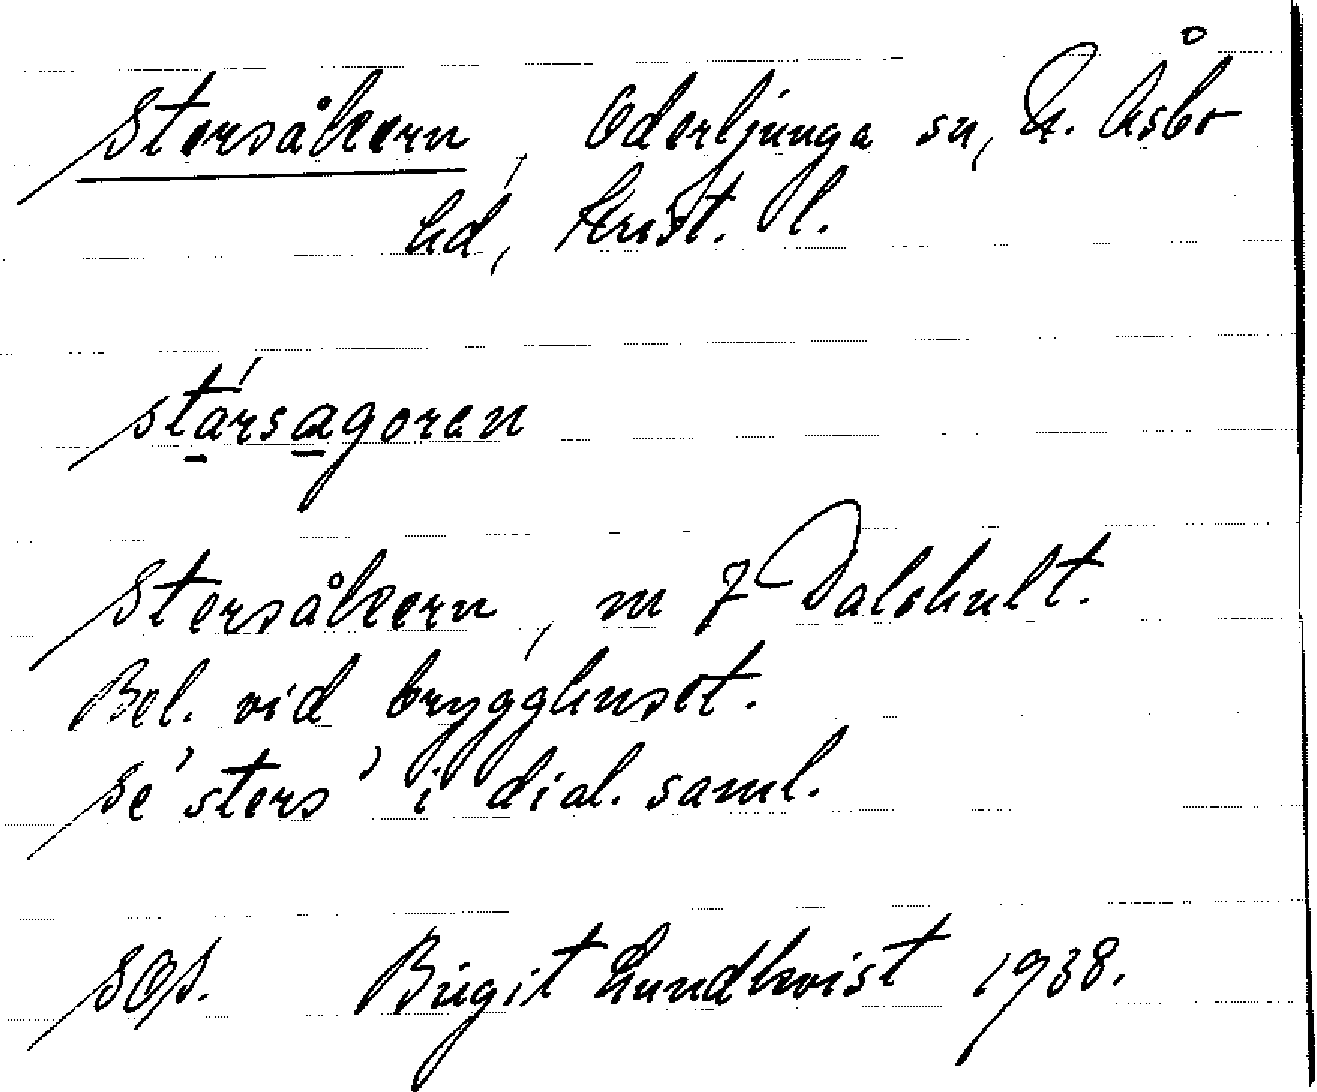 Stersåkern, Oderljunga sn, N. Åsbo
hd, Krist. l.
stársagoren
Stersåkern, m 7 Dalshult.
Bel. vid brygghuset.
Se 'sters' i dial. saml.
SOS. Birgit Lundkvist 1938.